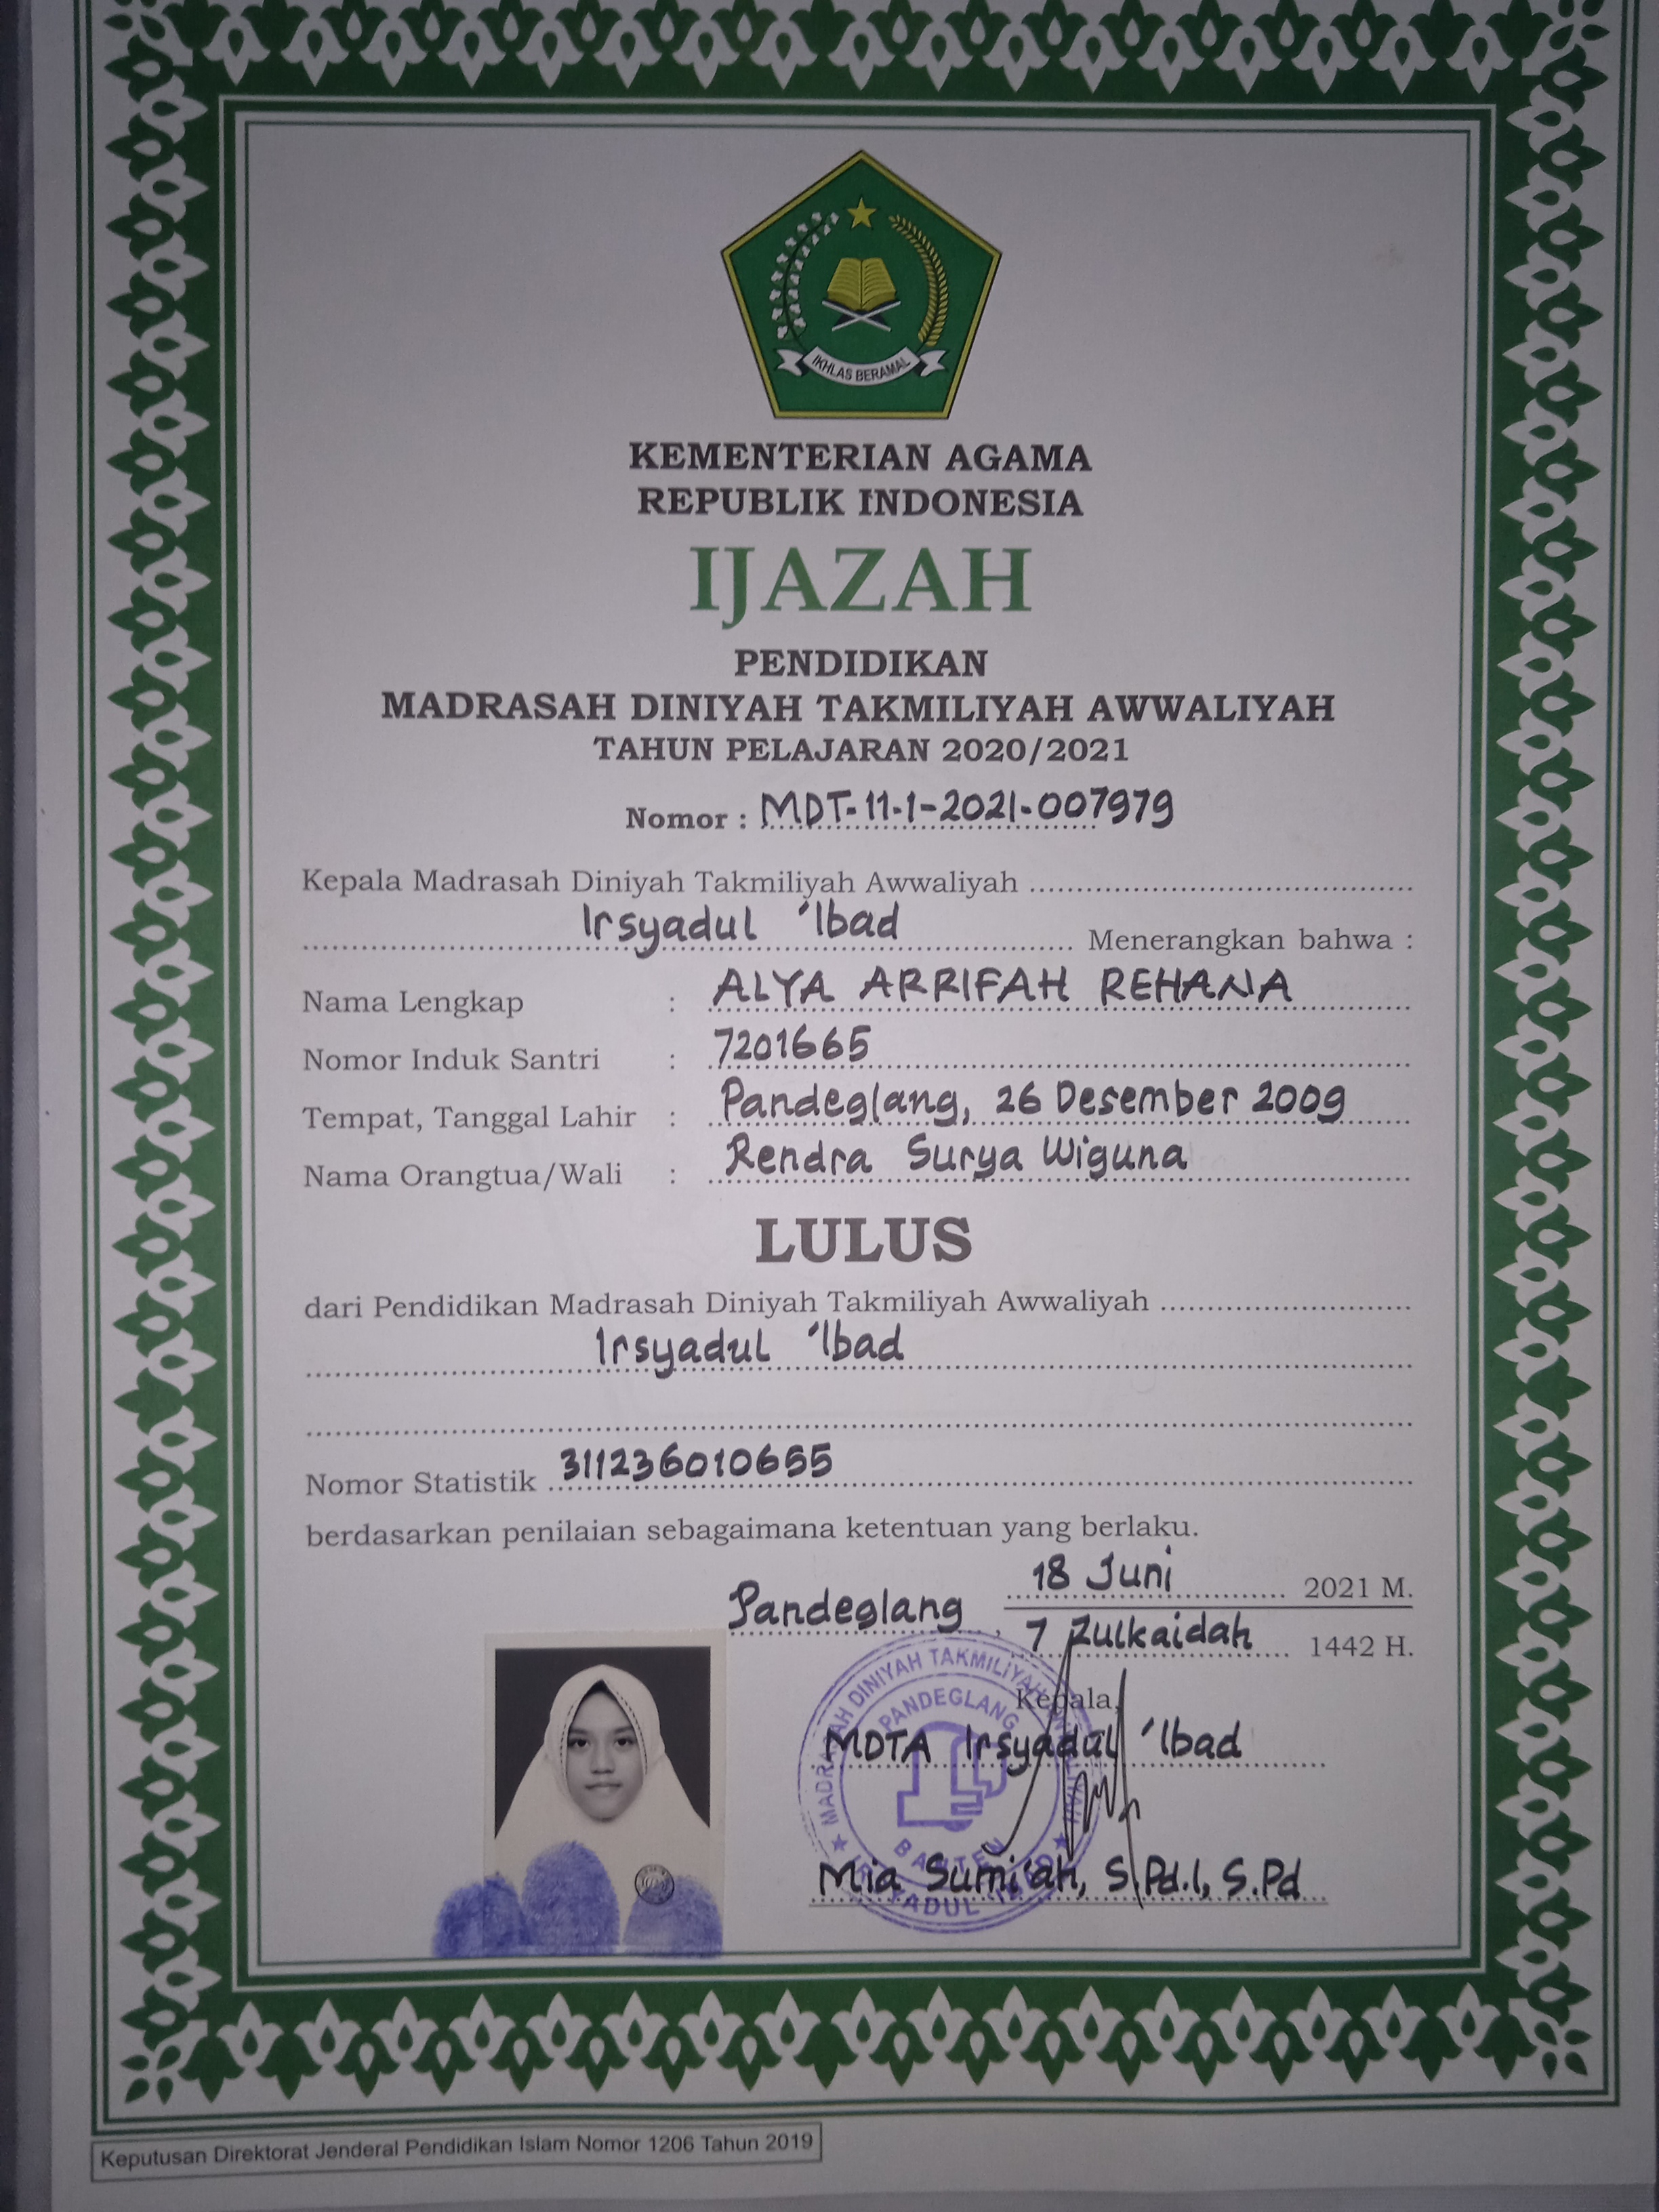 IKHLAS BERAMAL
KEMENTERIAN AGAMA
REPUBLIK INDONESIA
IJAZAH
PENDIDIKAN
MADRASAH DINIYAH TAKMILIYAH AWWALIYAH
TAHUN PELAJARAN 2020/2021
Nomor : MDT-11-1-2021-007979
Kepala Madrasah Diniyah Takmiliyah Awwaliyah
Irsyadul 'Ibad Menerangkan bahwa :
Nama Lengkap : ALYA ARRIFAH REHANA
Nomor Induk Santri : 7201665
Tempat, Tanggal Lahir : Pandeglang, 26 Desember 2009
Nama Orangtua/Wali : Rendra Surya Wiguna
LULUS
dari Pendidikan Madrasah Diniyah Takmiliyah Awwaliyah
Irsyadul 'Ibad
Nomor Statistik 311236010655
berdasarkan penilaian sebagaimana ketentuan yang berlaku.
Pandeglang, 18 Juni 2021 M.
7 Zulkaidah 1442 H.
Kepala,
MDTA Irsyadul 'Ibad
MADRASAH DINIYAH TAKMILIYAH AWWALIYAH
PANDEGLANG
BANTEN
IRSYADUL 'IBAD
Mia Sumi'ah, S.Pd.I, S.Pd
Keputusan Direktorat Jenderal Pendidikan Islam Nomor 1206 Tahun 2019